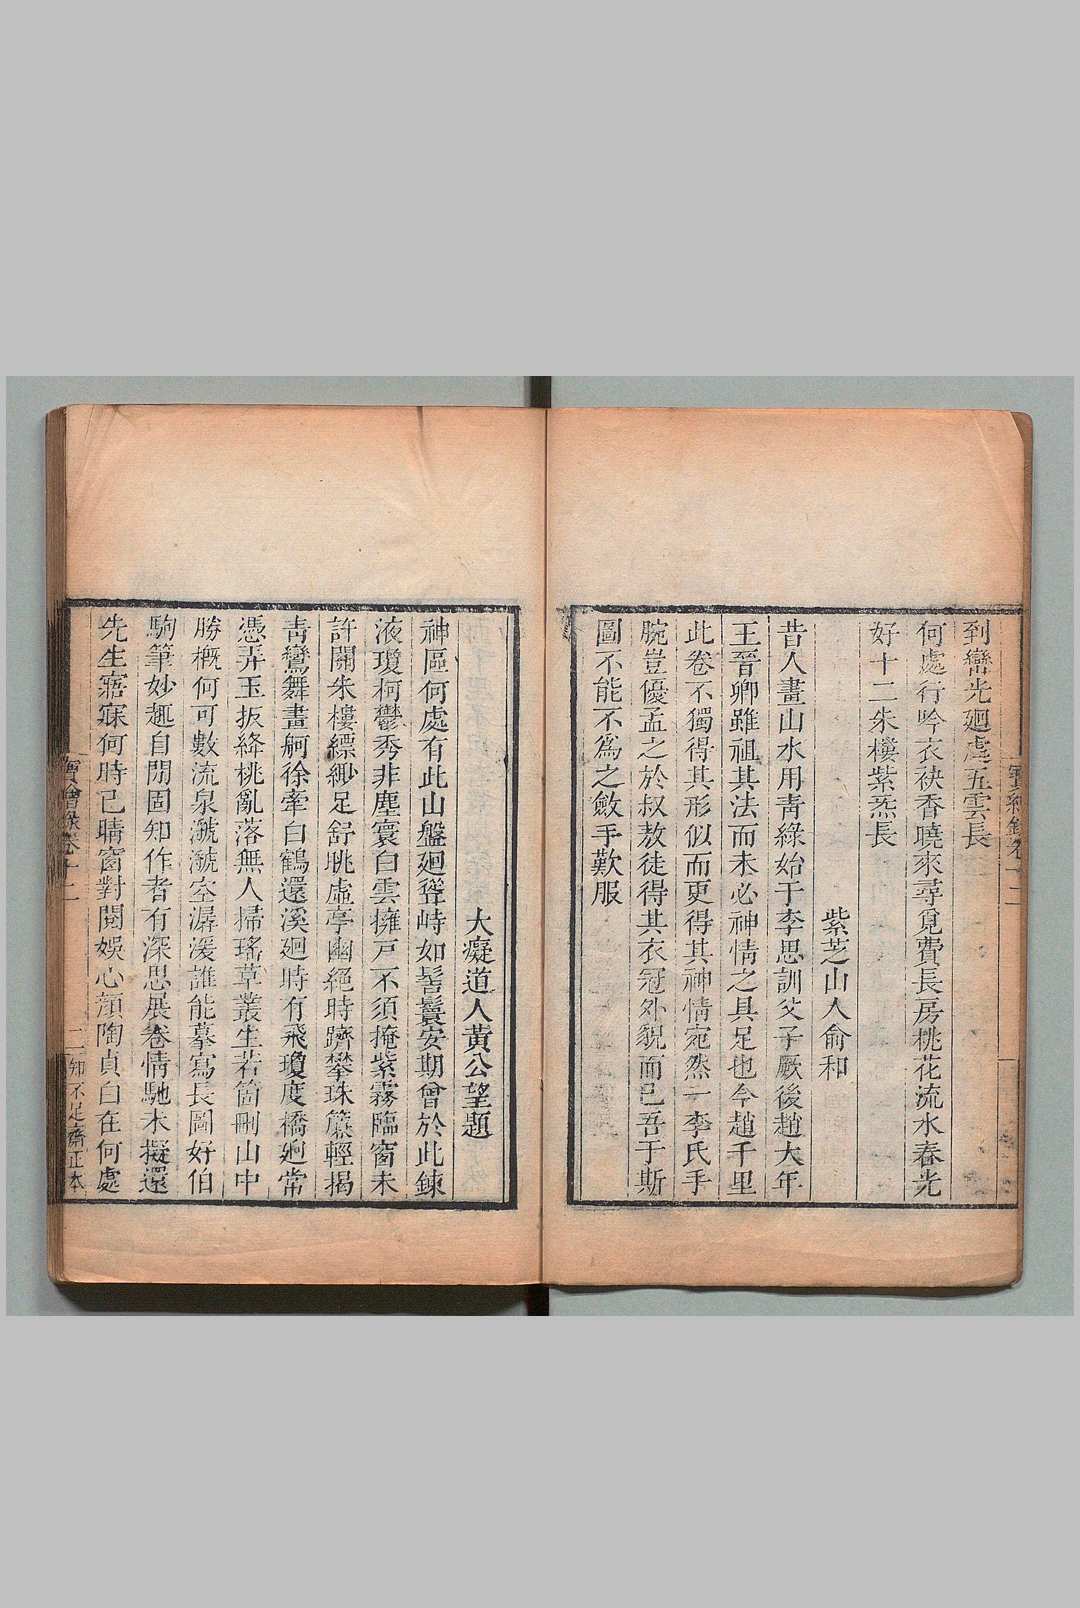 到巒光廻處五雲長
何處行吟衣袂香曉來尋覓費長房桃花流水春光
好十二朱樓紫炁長
紫芝山人俞和
昔人畫山水用青綠始于李思訓父子厥後趙大年
王晉卿雖祖其法而未必神情之具足也今趙千里
此卷不獨得其形似而更得其神情宛然一李氏手
腕豈優孟之於叔敖徒得其衣冠外貌而已吾于斯
圖不能不爲之斂手歎服
大癡道人黃公望題
神區何處有此山盤廻聳峙如髻鬟安期曾於此鍊
液瓊柯鬱秀非塵寰白雲擁戸不須掩紫霧臨窗未
許關朱樓縹緲足舒眺虛亭幽絕時躋攀珠簾輕揭
青鸞舞畫舸徐牽白鶴還溪廻時有飛瓊度橋廻常
憑弄玉扳絳桃亂落無人掃瑤草叢生若箇刪山中
勝概何可數流泉潺湲誰能摹寫長圖好伯
駒筆妙趣自閒固知作者有深思展卷情馳未擬還
先生寤寐何時已晴窗對閱娛心顏陶貞白在何處
寶繪錄卷十二
二 知不足齋正本